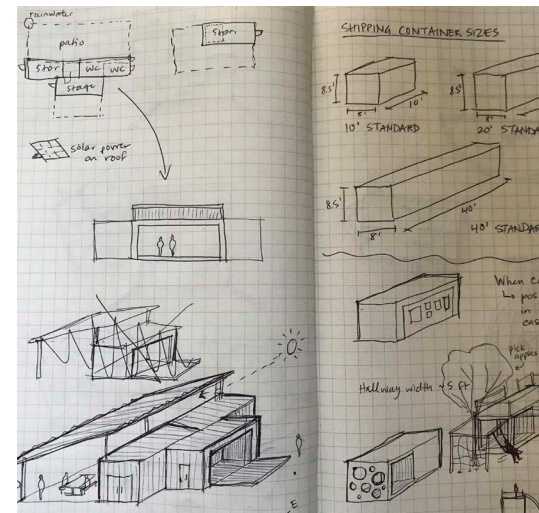 rainwater
patio
Stor
WC
WC
Stage
Stor
solar power
on roof
E
SHIPPING CONTAINER SIZES
8.5'
8'
10'
10' STANDARD
8.5'
8'
20' STANDA
8.5'
8'
40'
40' STANDAR
When c
↳ pos
in
cas
pick
apples
Hallway width ~5 ft